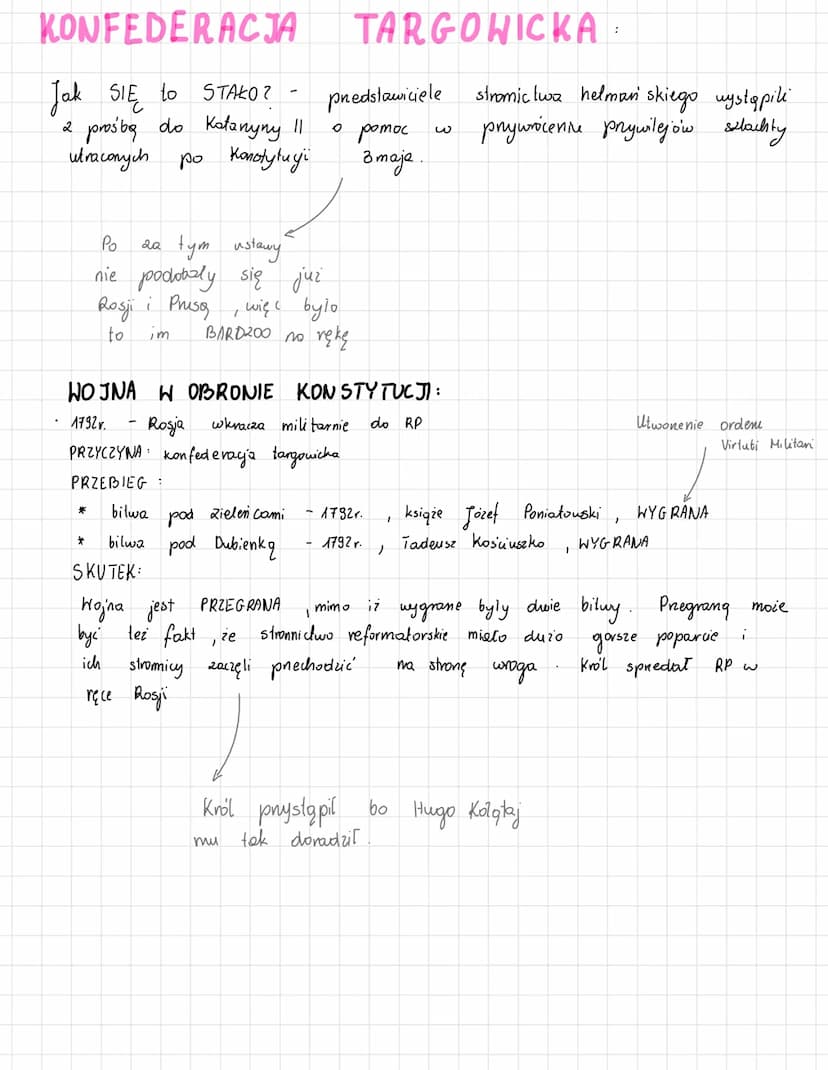 KONFEDERACJA TARGOWICKA :
Jak SIĘ to STAŁO? - przedstawiciele stronnictwa hetmańskiego wystąpili
z prośbą do Katarzyny II o pomoc w przywrócenie przywilejów szlachty
utraconych po Konstytucji 3 maja.
Po za tym ustawy
nie podobały się już
Rosji i Prusą, więc było
to im BARDZOO na rękę
WOJNA W OBRONIE KONSTYTUCJI:
· 1792r. - Rosja wkracza militarnie do RP
Utworzenie orderu
Virtuti Militari
PRZYCZYNA: konfederacja targowicka
PRZEBIEG :
* bitwa pod Zieleńcami - 1792r. , książe Józef Poniatowski , WYGRANA
* bitwa pod Dubienką - 1792r. , Tadeusz Kościuszko , WYGRANA
SKUTEK:
Wojna jest PRZEGRANA , mimo iż wygrane były dwie bitwy. Przegraną może
być też fakt , że stronnictwo reformatorskie miało dużo gorsze poparcie i
ich stronnicy zaczęli przechodzić na stronę wroga . Król sprzedał RP w
ręce Rosji
Król przystąpił bo Hugo Kołątaj
mu tak doradził.